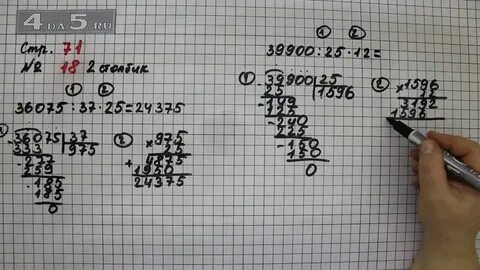 4DA5.RU
Стр. 71
№ 18 2 столбик
① ②
36075 : 37 · 25 = 24375
① - 36075 | 37
333 | 975
- 277
259
- 185
185
0
② × 975
25
+ 4875
1950
24375
① ②
39900 : 25 · 12 =
① - 39900 | 25
25 | 1596
- 149
125
- 240
225
- 150
150
0
② × 1596
12
3192
1596